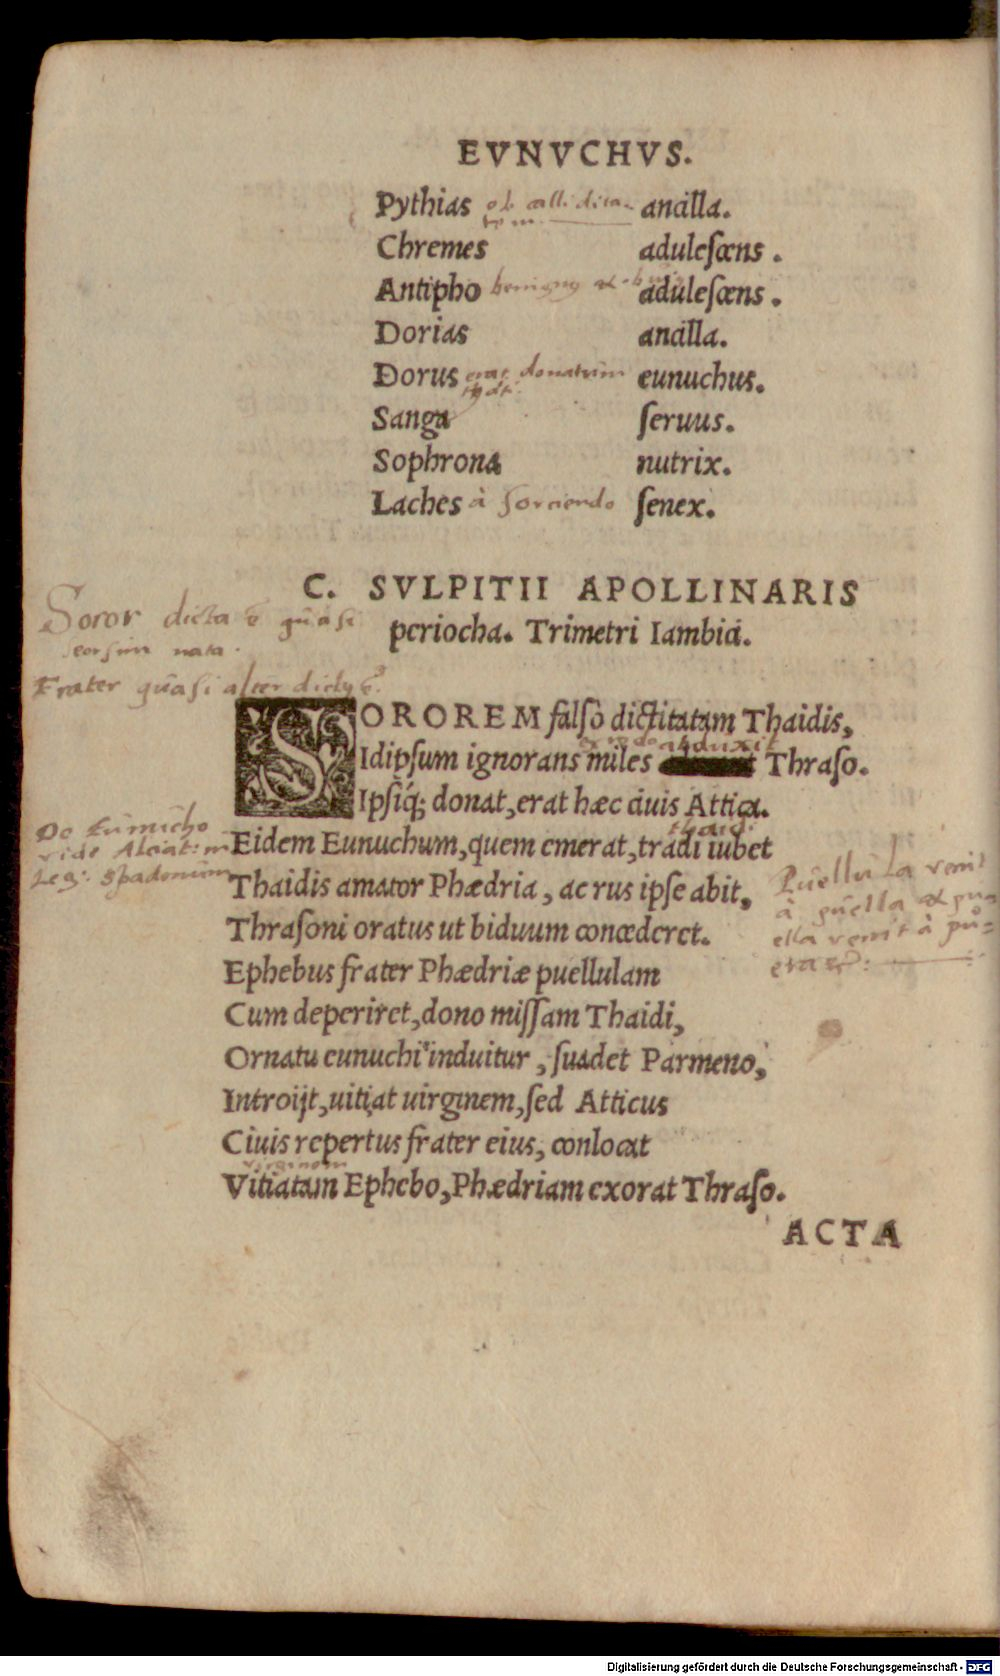 EVNVCHVS.
Pythias ob calliditatem ancilla.
Chremes adulescens.
Antipho benignus adulescens.
Dorias ancilla.
Dorus erat donatum eunuchus.
Sanga seruus.
Sophrona nutrix.
Laches à sorciendo senex.
C. SVLPITII APOLLINARIS
periocha. Trimetri Iambici.
Soror dicta ē quasi
seorsim nata.
Frater quasi alter dictus ē.
SOROREM falsò dictitatam Thaidis,
abduxit
Idipsum ignorans miles Thraso.
Ipsiq́; donat, erat hæc ciuis Attica.
thaidi
Eidem Eunuchum, quem emerat, tradi iubet
De Eunucho
vide Alciat: in
Leg: spadonum
Thaidis amator Phædria, ac rus ipse abit,
Thrasoni oratus ut biduum concederet.
Puellula venit
à puella & pu
ella venit à pu=
era
Ephebus frater Phædriæ puellulam
Cum deperiret, dono missam Thaidi,
Ornatu eunuchi induitur, suadet Parmeno,
Introijt, uitiat uirginem, sed Atticus
Ciuis repertus frater eius, conlocat
virginem
Vitiatam Ephebo, Phædriam exorat Thraso.
ACTA
Digitalisierung gefördert durch die Deutsche Forschungsgemeinschaft - DFG